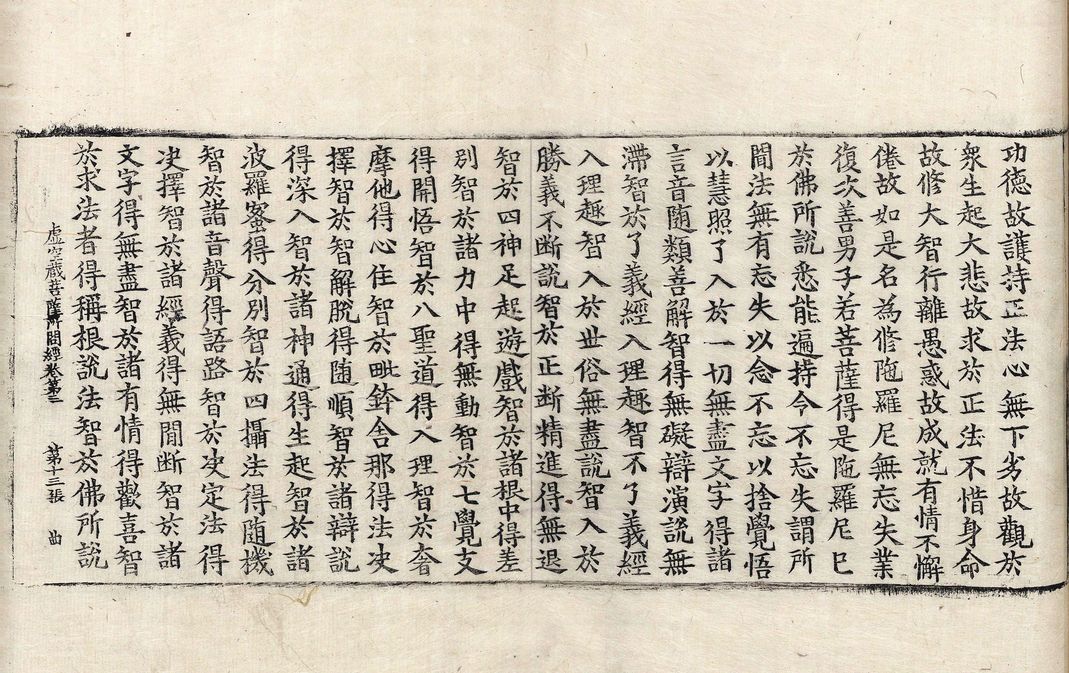 功德故護持正法心無下劣故觀於
衆生起大悲故求於正法不惜身命
故修大智行離愚惑故成就有情不懈
倦故如是名為修陁羅尼無忘失業
復次善男子若菩薩得是陁羅尼已
於佛所說悉能遍持令不忘失謂所
聞法無有忘失以念不忘以捨覺悟
以慧照了入於一切無盡文字得諸
言音随類善解智得無礙辯演說無
滯智於了義經入理趣智不了義經
入理趣智入於世俗無盡說智入於
勝義不断說智於正断精進得無退
智於四神足起遊戲智於諸根中得差
別智於諸力中得無動智於七覺支
得開悟智於八聖道得入理智於奢
摩他得心住智於毗鉢舍那得法決
擇智於智解脫得随順智於諸辯說
得深入智於諸神通得生起智於諸
波羅蜜得分別智於四攝法得随機
智於諸音聲得語路智於决定法得
决擇智於諸經義得無間断智於諸
文字得無盡智於諸有情得歡喜智
於求法者得稱根說法智於佛所說
虛空藏菩薩所問經卷第三 第十三張 曲